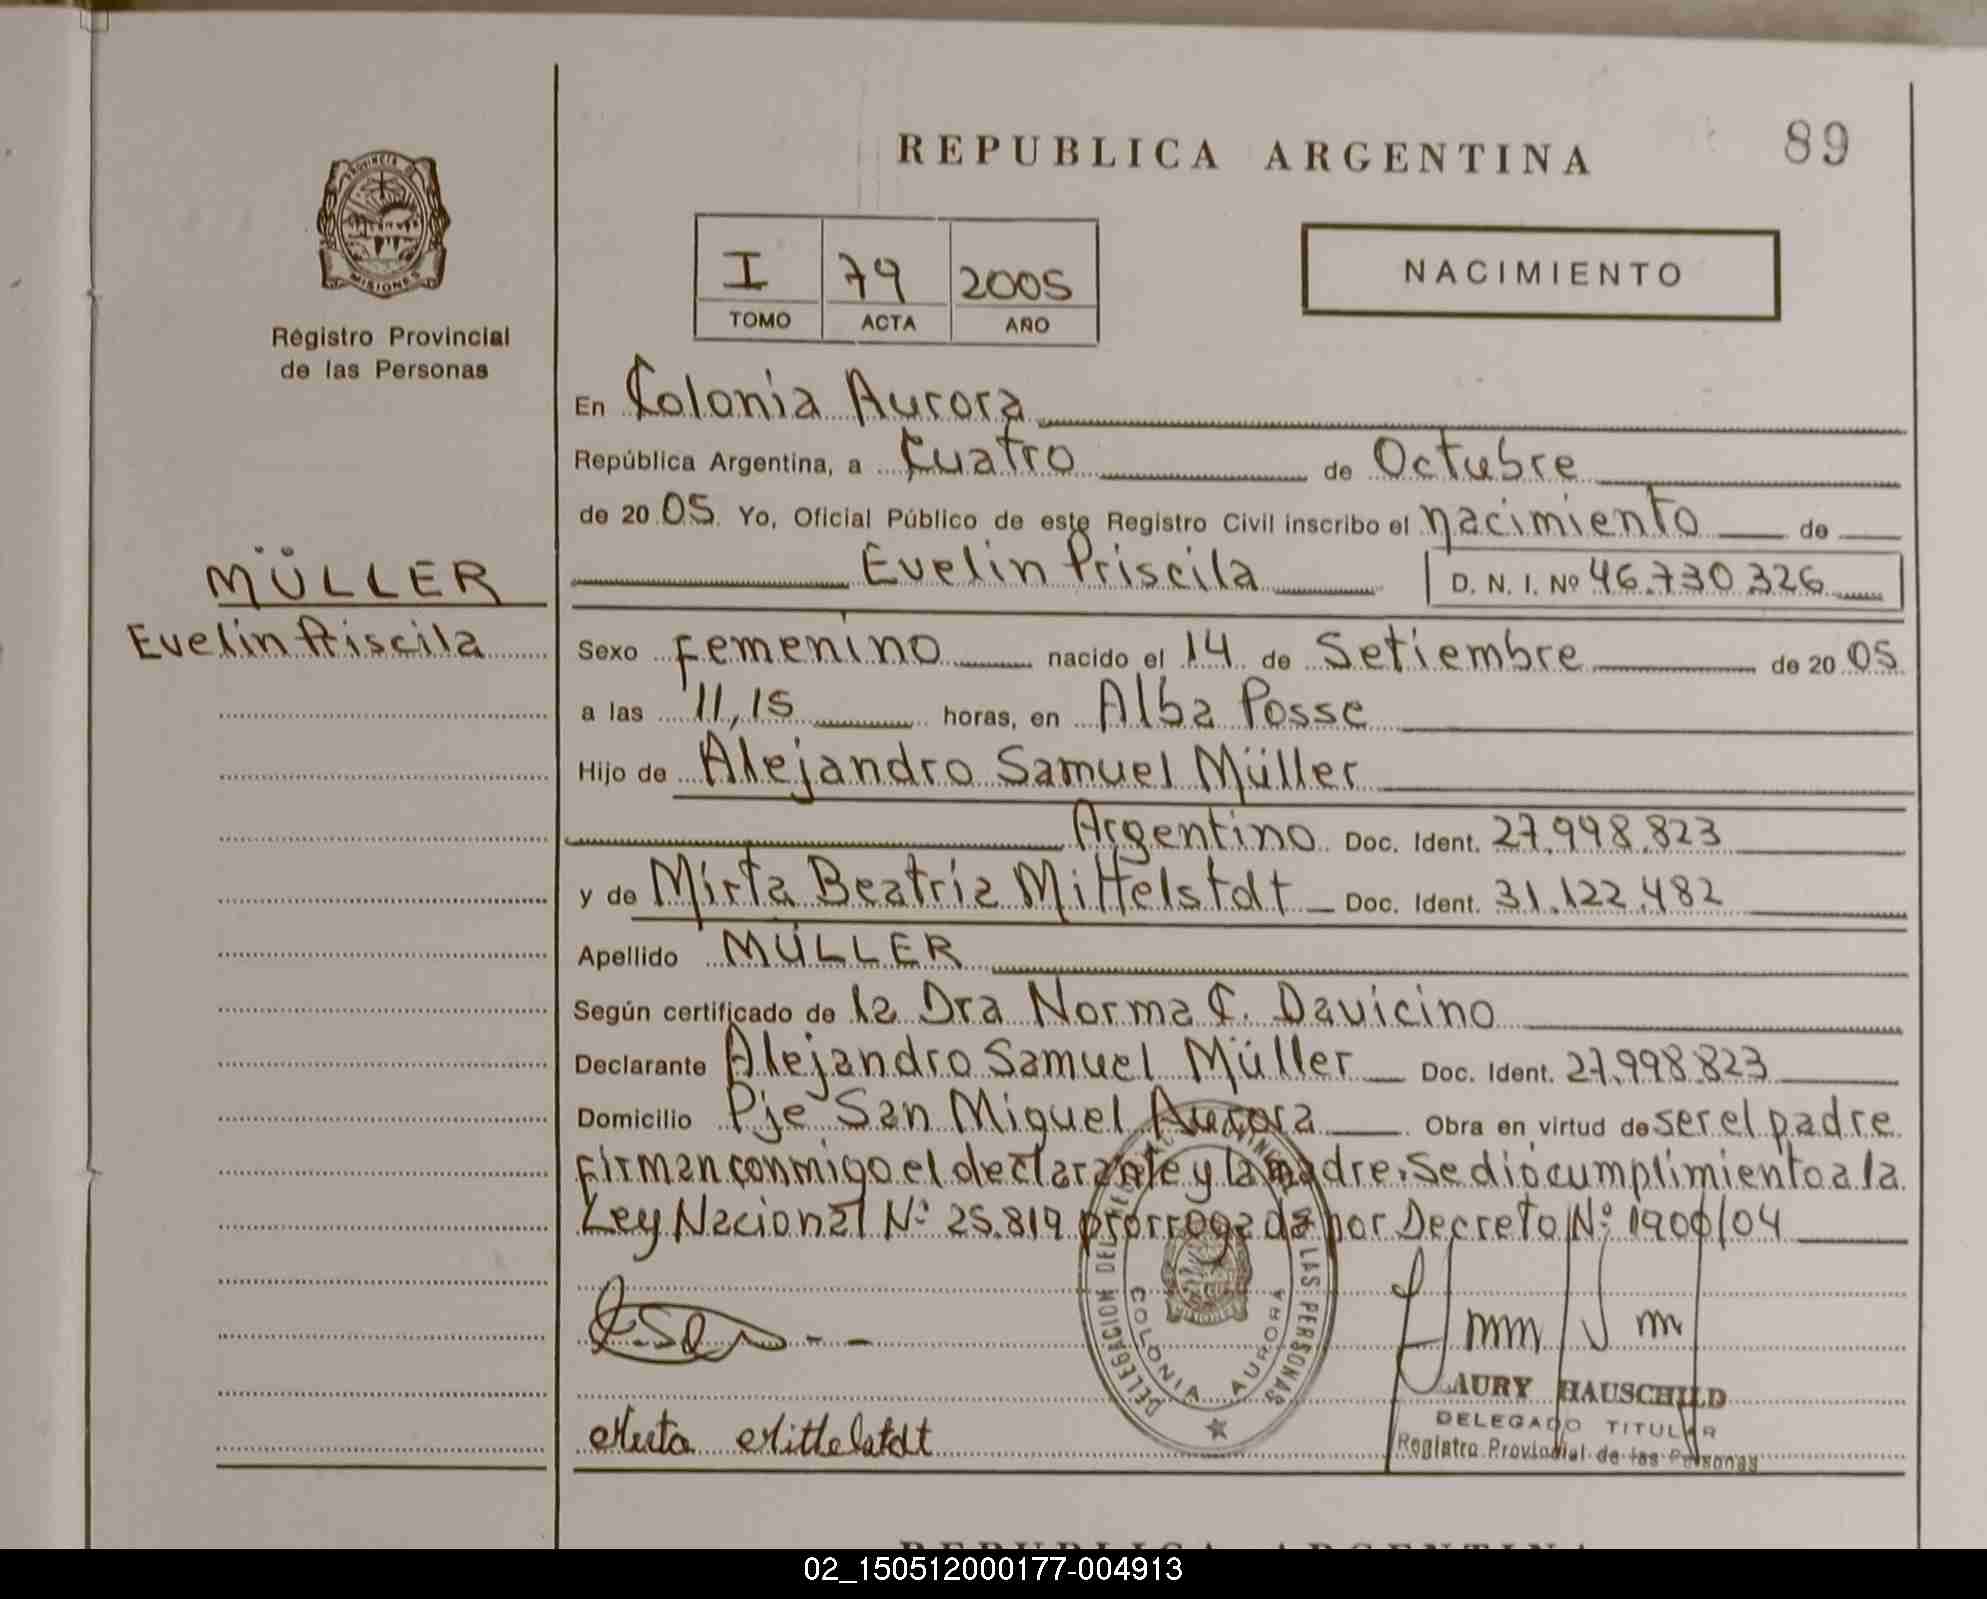 REPUBLICA ARGENTINA
89
PROVINCIA DE
MISIONES
Registro Provincial
de las Personas
I 79 2005
TOMO ACTA AÑO
NACIMIENTO
En Colonia Aurora
República Argentina, a Cuatro de Octubre
de 2005 Yo, Oficial Público de este Registro Civil inscribo el nacimiento de
Evelin Priscila D. N. I. Nº 46.730.326
MÜLLER
Evelin Priscila
Sexo Femenino nacido el 14 de Setiembre de 2005
a las 11,15 horas, en Alba Posse
Hijo de Alejandro Samuel Müller
Argentino Doc. Ident. 27.998.823
y de Mirta Beatriz Mittelstdt Doc. Ident. 31.122.482
Apellido MÜLLER
Según certificado de la Dra Norma C. Davicino
Declarante Alejandro Samuel Müller Doc. Ident. 27.998.823
Domicilio Pje San Miguel Aurora Obra en virtud de ser el padre
Firman conmigo el declarante y la madre. Se dio cumplimiento a la
Ley Nacional Nº 25.819 prorrogada por Decreto Nº 1900/04
DELEGACION DEL REGISTRO PROVINCIAL DE LAS PERSONAS
COLONIA AURORA
Mirta Mittelstdt
LAURY HAUSCHILD
DELEGADO TITULAR
Registro Provincial de las Personas
REPUBLICA ARGENTINA
02_150512000177-004913